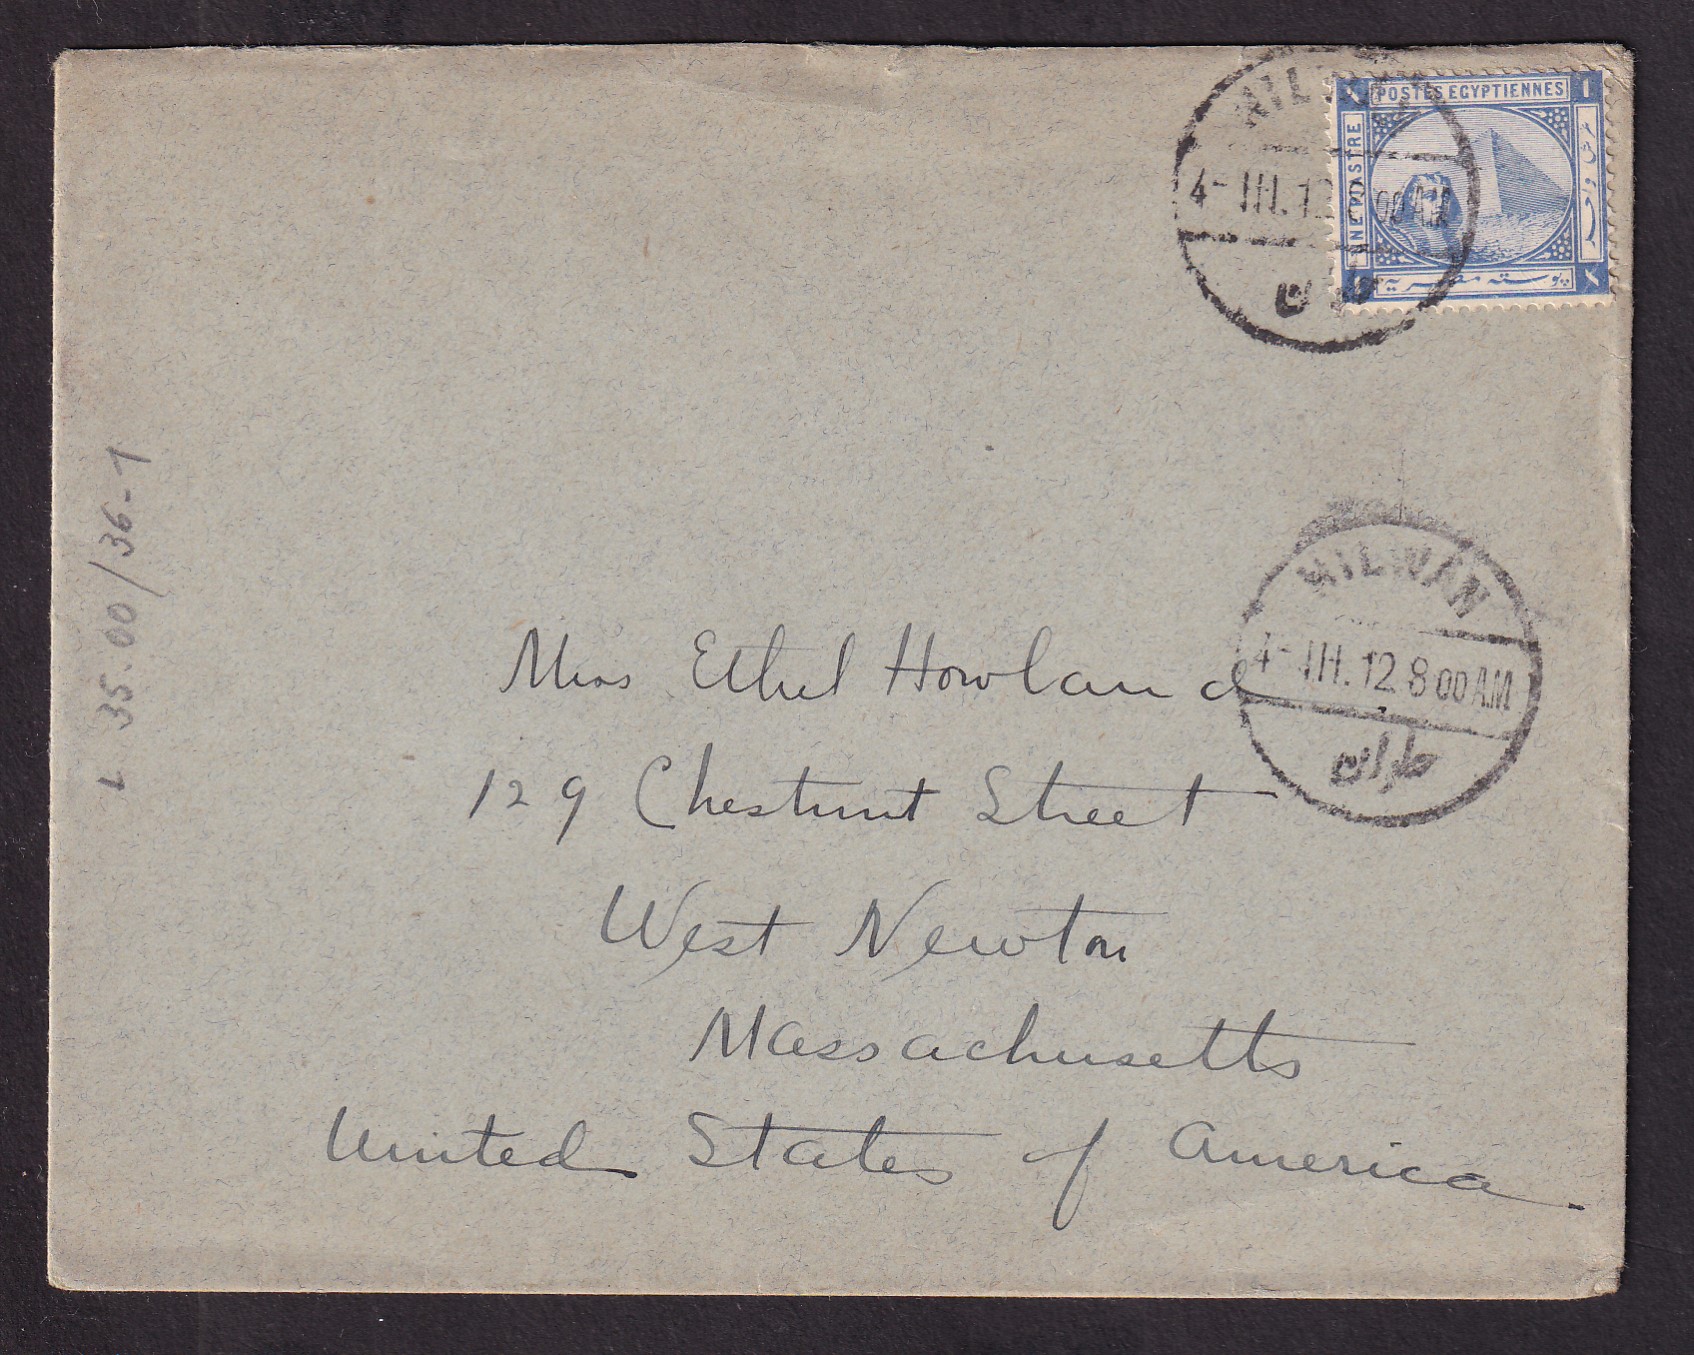 POSTES EGYPTIENNES
1
UNE PIASTRE
غرش واحد
پوسته مصرية
١
4-III.12
00 AM
HILWAN
4-III.12. 8 00 A.M
حلوان
Miss Ethel Howland
129 Chestnut Street
West Newton
Massachusetts
United States of America.
L 35.00/36-1